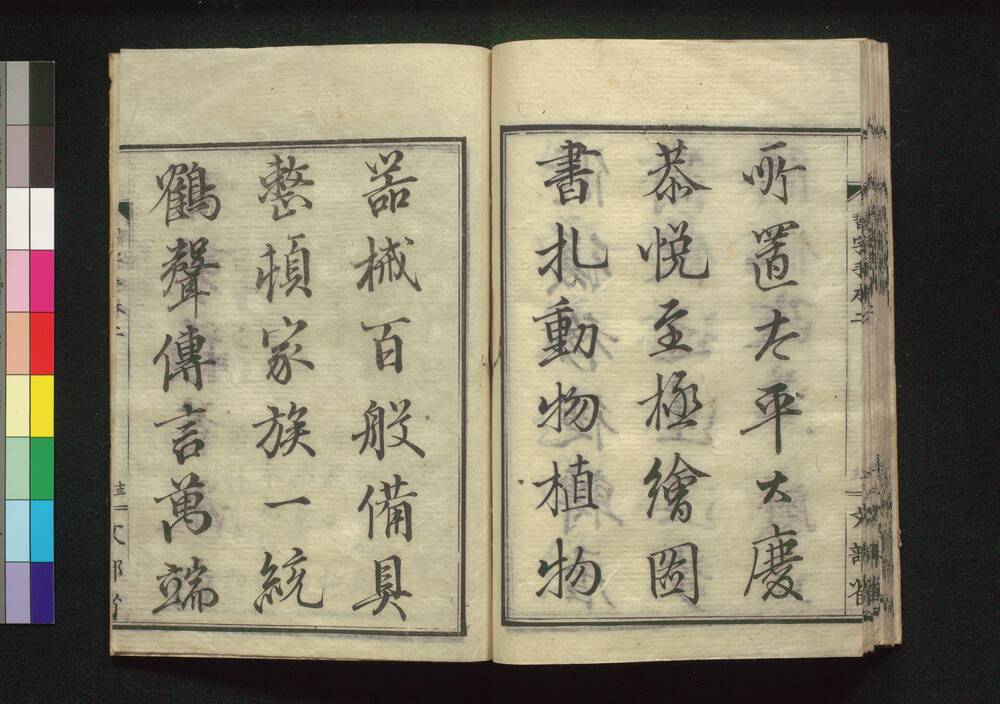 所置太平大慶
恭悦至極繪圖
書札動物植物
器械百般備具
整頓家族一統
鶴聲傳言萬端
習字手本二
文部省